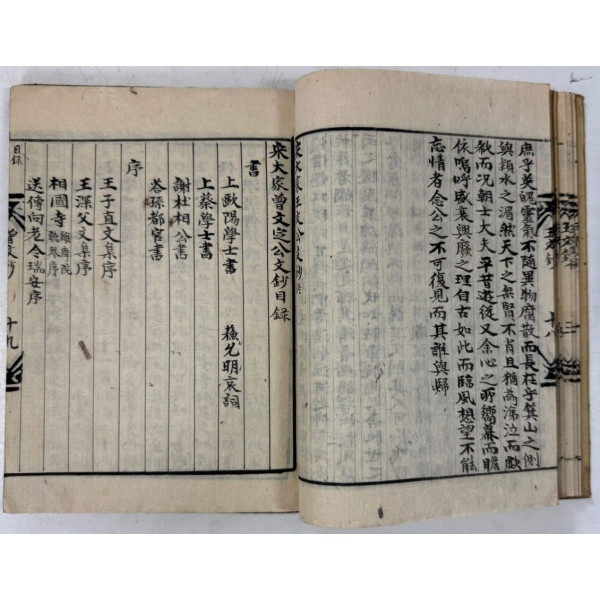 庶乎英魄靈氣不隨異物腐散而長在乎箕山之側
與潁水之湄然天下之無賢不肖且猶為涕泣而歔
欷而况朝士大夫平昔遊從又余心之所嚮慕而瞻
依嗚呼盛衰興廢之理自古如此而臨風想望不能
忘情者念公之不可復見而其誰與歸
宋大家曾文定公文鈔目録
書
上歐陽學士書
上蔡學士書
謝杜相公書
答孫都官書
蘇光明哀詞
序
王子直文集序
王深父文集序
相國寺維摩院聽琴序
送傳向老令瑞安序
目録
十九